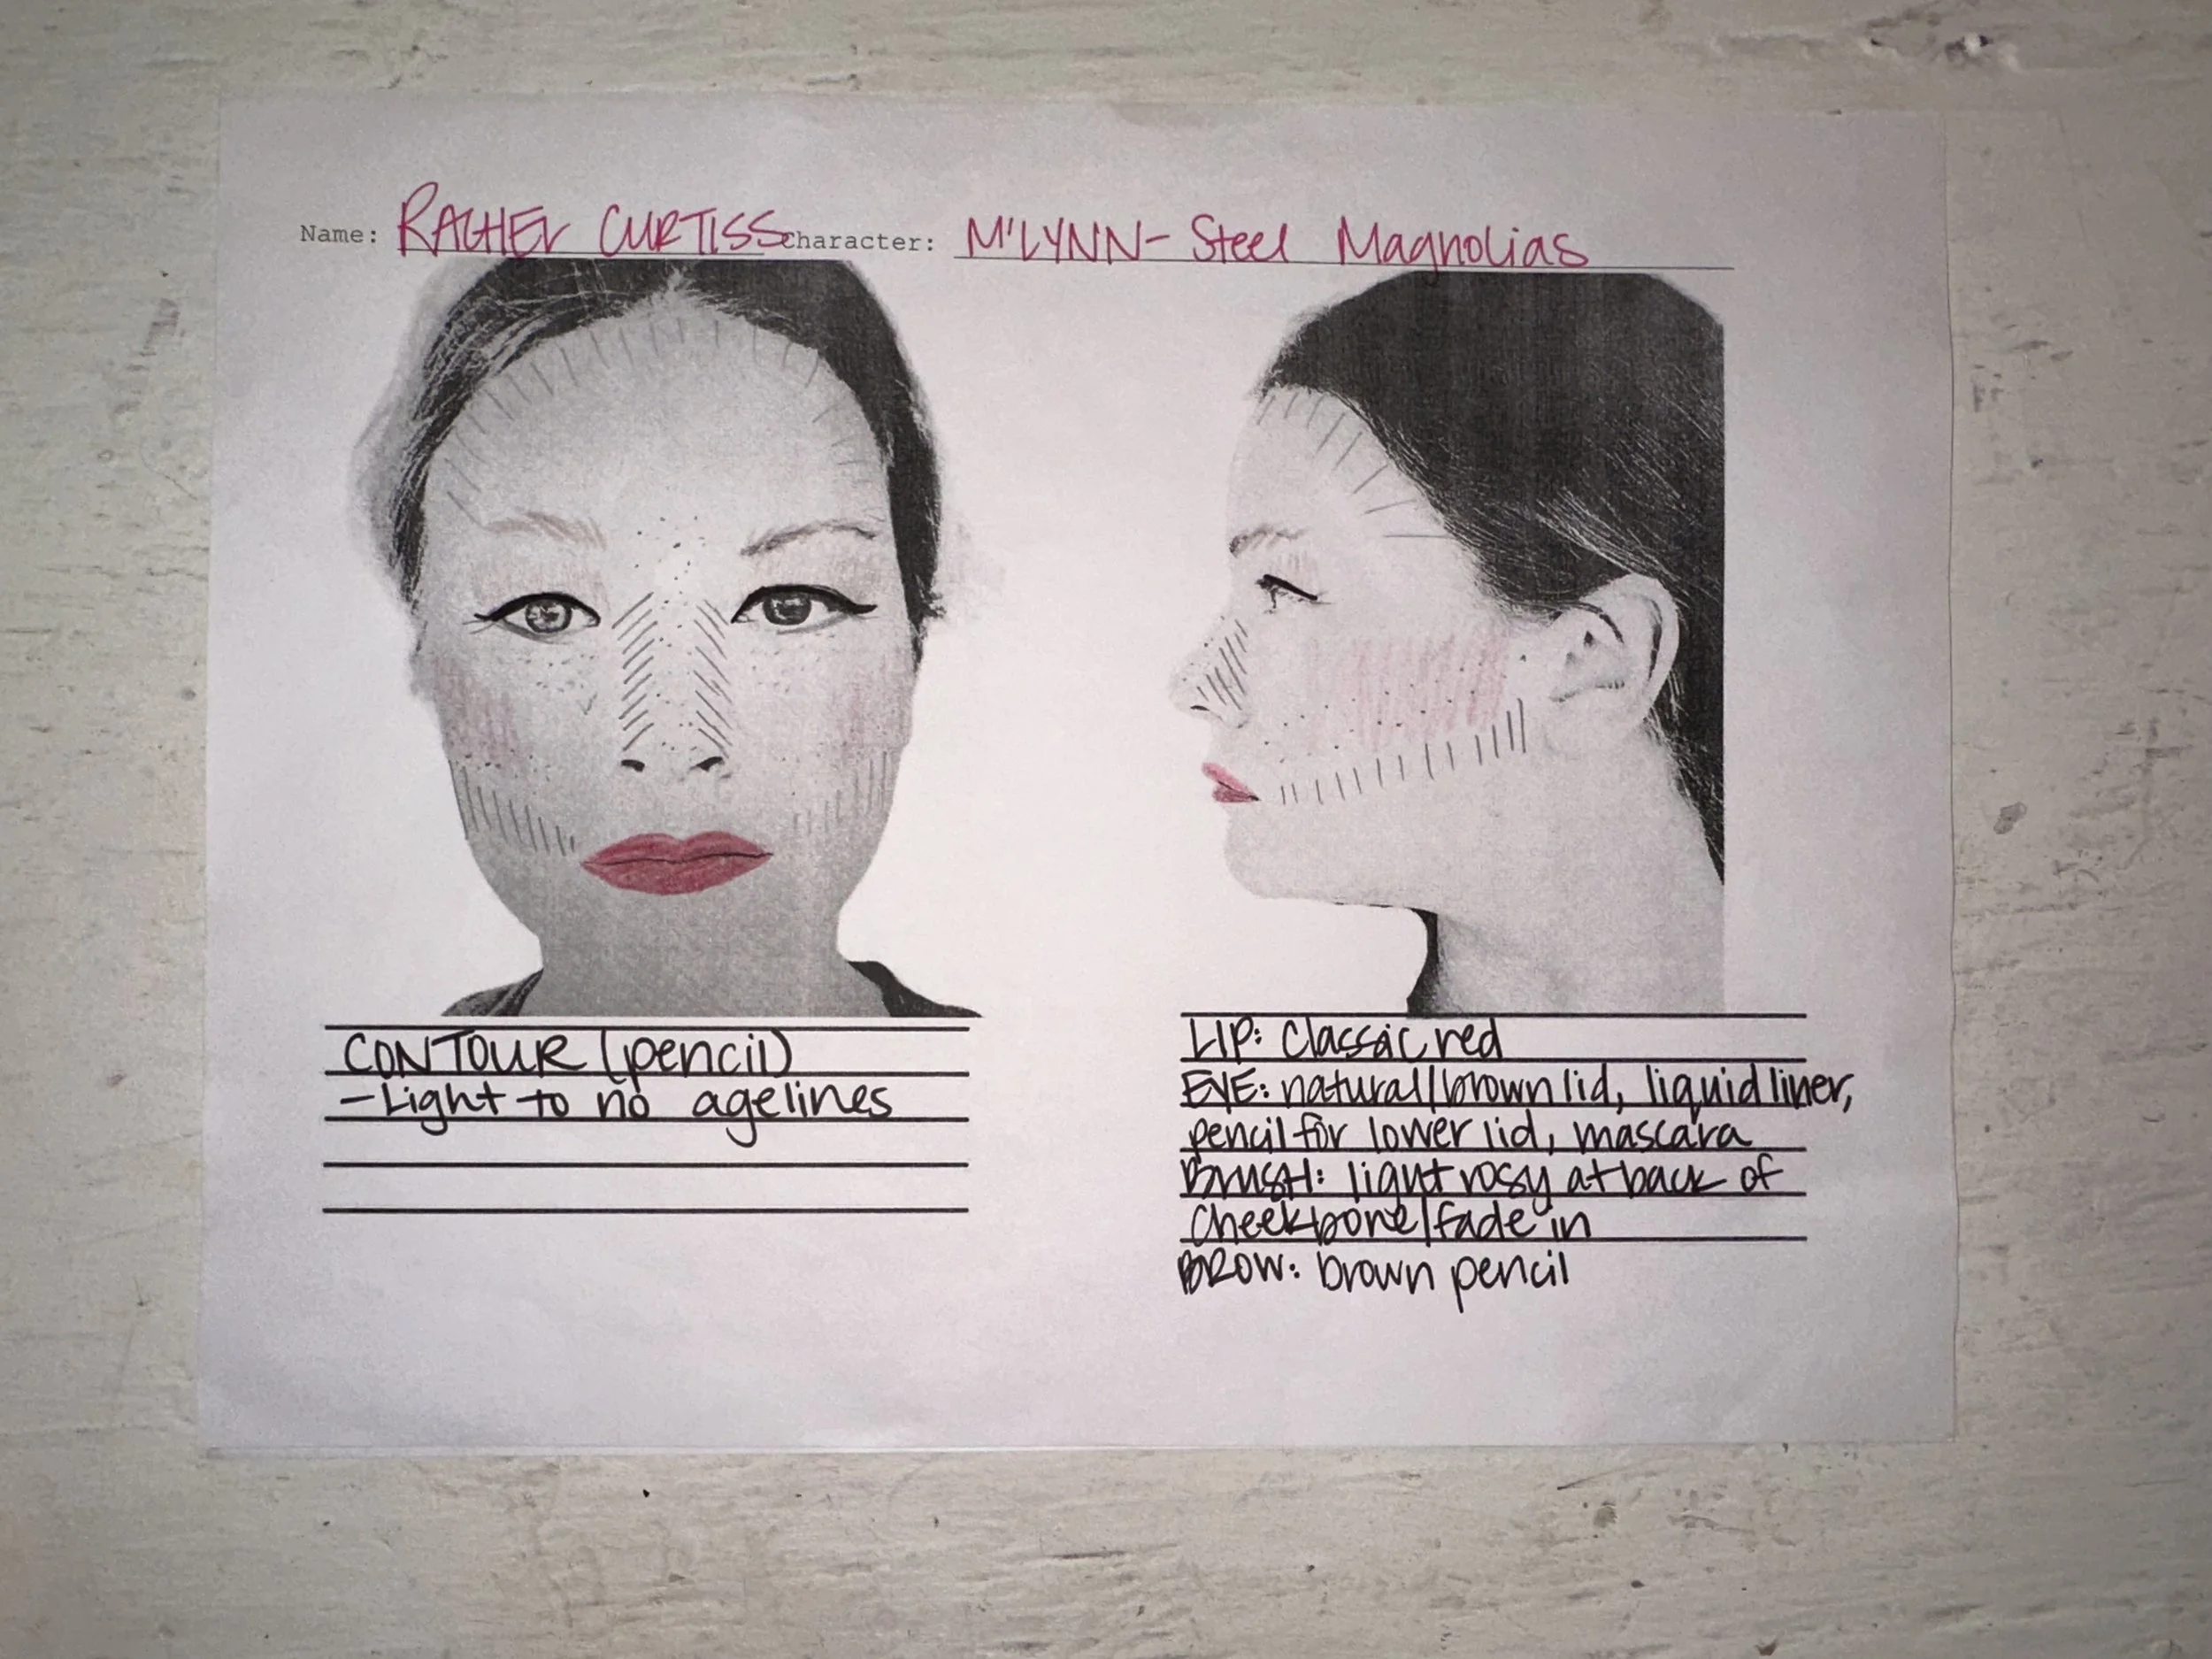 Name: RACHEL CURTISS Character: M'LYNN- Steel Magnolias
CONTOUR (pencil)
-Light to no agelines
LIP: Classic red
EYE: natural/brown lid, liquid liner,
pencil for lower lid, mascara
BLUSH: light rosy at back of
Cheekbone/fade in
BROW: brown pencil